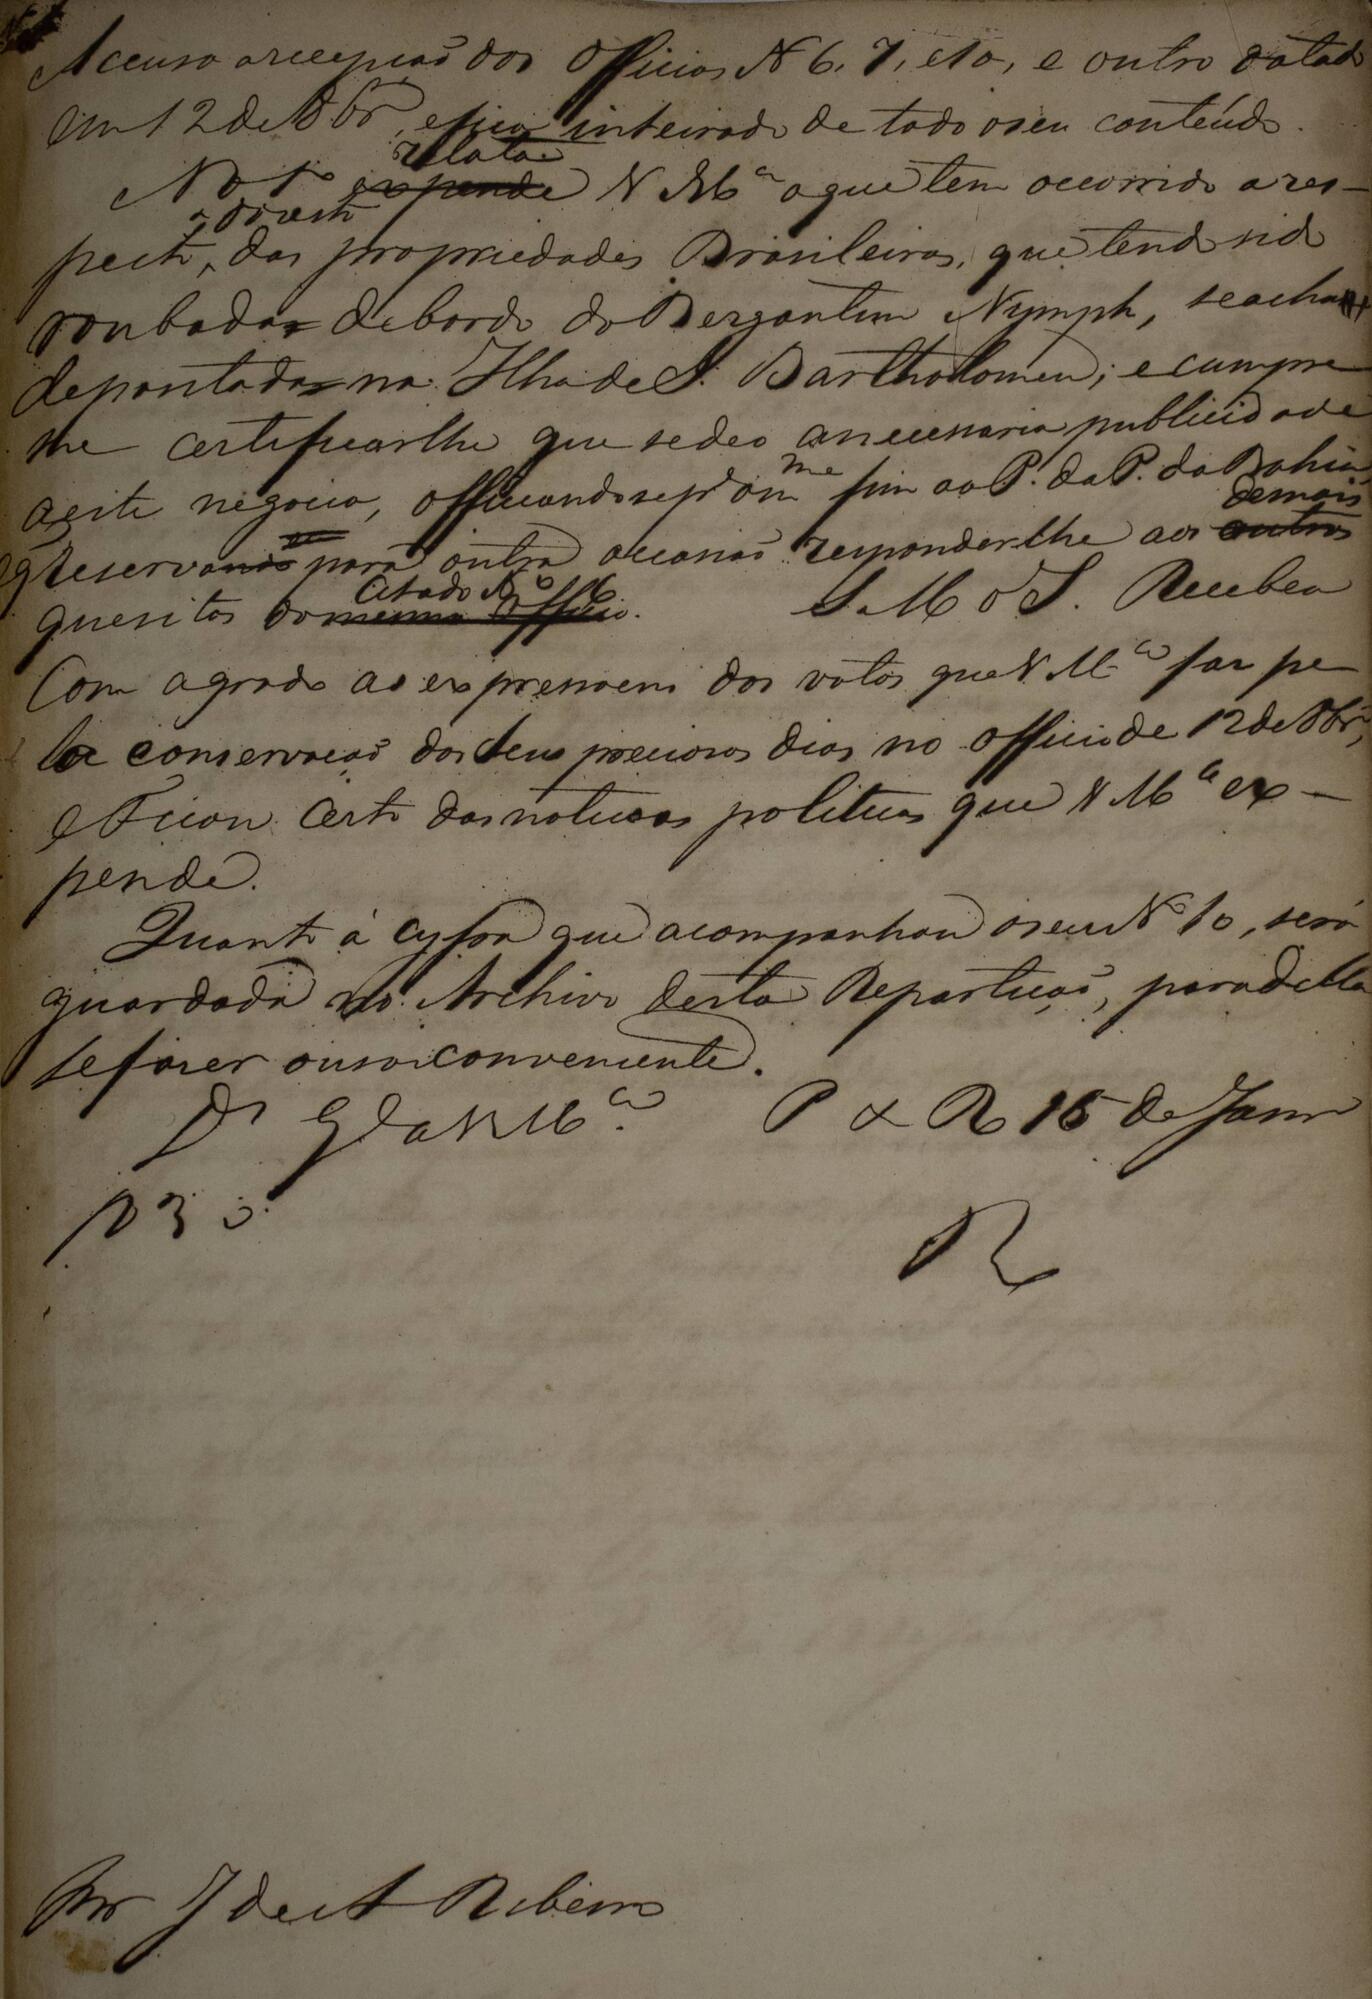 Accuso a recepção dos Officios N 6, 7, e 10, e outro datado
em 12 de 8br.º, e fico inteirado de todo o seu conteúdo.
relata
No 1º expende V Mce o que tem occorrido a res-
o direito
peito das propriedades Brasileiras, que tendo sido
roubadas de bordo do Bergantim Nymph, se achão
depositadas na Ilha de S. Bartholomeu; e cumpre
me certificar lhe que se deo a necessaria publicidade
a este negocio, officiando se pª o m.mo fim ao P. da P. da Bahia
demais
reservando para outra occasião responder lhe aos outros
citado Nº 6
quesitos do mesmo Officio. S. M. o I. Recebeu
com agrado as expressoens dos votos que V Mce faz pe
la conservação dos Seus preciosos dias no officio de 12 de 8br.º,
e Ficou certo das noticias politicas que V Mce ex-
pende.
Quanto á cyfra que acompanhou o seu Nº 10, será
guardada no Archivo desta Repartição, para della
se fazer o uso conveniente.
Ds Gde a V Mce. P. em 15 de Janrº
1830.
R
Snr J de A Ribeiro